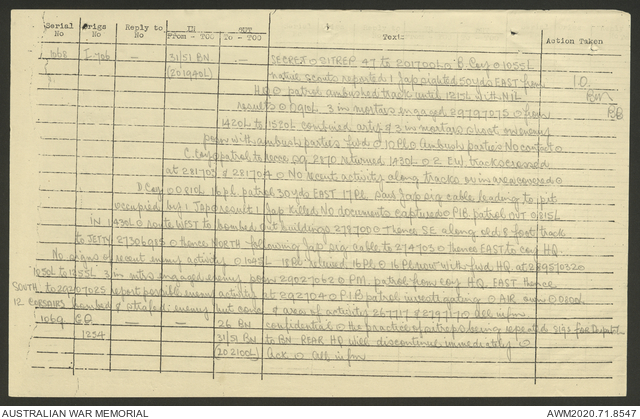 Serial No Origs No Reply to No IN From - TOO OUT To - TOO Text Action Taken
1068 I 706 — 31/51 BN —. SECRET o SITREP 47 to 201700L o B. Coy o 1055L
(201940L) native scouts reported 1 Jap sighted 50 yds EAST from I.O.
HQ o patrol ambushed track until 1215L with NIL Bn
results o 0910L 3 in mortars engaged 89797075 o from
1420L to 1520L combined arty & 3 in mortars shoot on enemy
posn with ambush parties fwd o 10 Pl o Ambush parties No contact o
C. Coy patrol to recce 2170 returned 1430L o 2 EW tracks crossed
at 281703 & 281704 o No recent activity along tracks or in area covered o
D Coy o 0810L 16 Pl. patrol 30 yds EAST 17 Pl. Jap sig cable leading to pit
occupied by 1 Jap o result 1 Jap killed No documents captured o PIB patrol OUT 0815L
IN 1430L o route WEST to bombed out buildings 278700 o Thence SE along old 8 foot track
to JETTY 27306985 o thence NORTH following Jap sig cable to 274703 o thence EAST to Coy HQ.
No signs of recent enemy activity o 1045L 18 Pl relieved 16 Pl o 16 Pl now with fwd HQ at 28957032 o
1050L to 1255L 3 in mtrs engaged enemy posn 29027062 o PM. patrol from Coy HQ EAST thence
SOUTH to 29207025 report possible enemy activity at 292704 o PIB patrol investigating o AIR 0200L
12 CORSAIRS bombed & strafed enemy hut & area of activity 267717 & 279717 o all infm.
1069 GQ — — 26 BN confidential o the practice of reps being repeated Sigs for
1254 31/51 BN to BN REAR HQ will discontinue immediately o
(202100L) Ack o All infm
AUSTRALIAN WAR MEMORIAL
AWM2020.71.8547